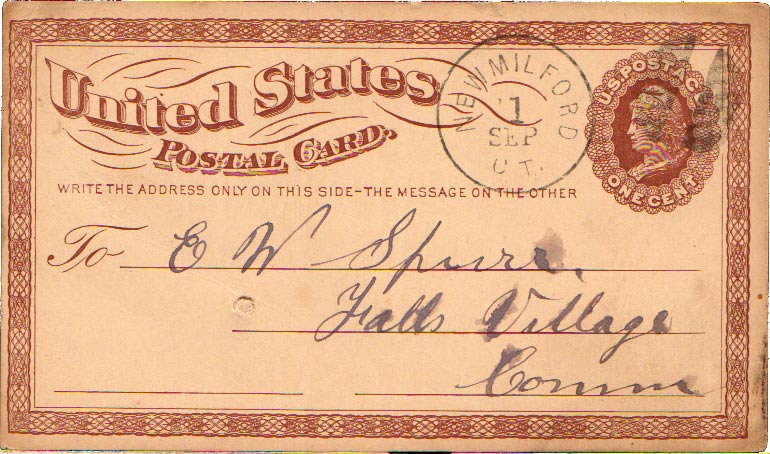 United States
POSTAL CARD.
WRITE THE ADDRESS ONLY ON THIS SIDE-THE MESSAGE ON THE OTHER
NEW MILFORD
1
SEP
CT.
U.S. POSTAGE
ONE CENT
To E W Spurr.
Falls Village
Conn